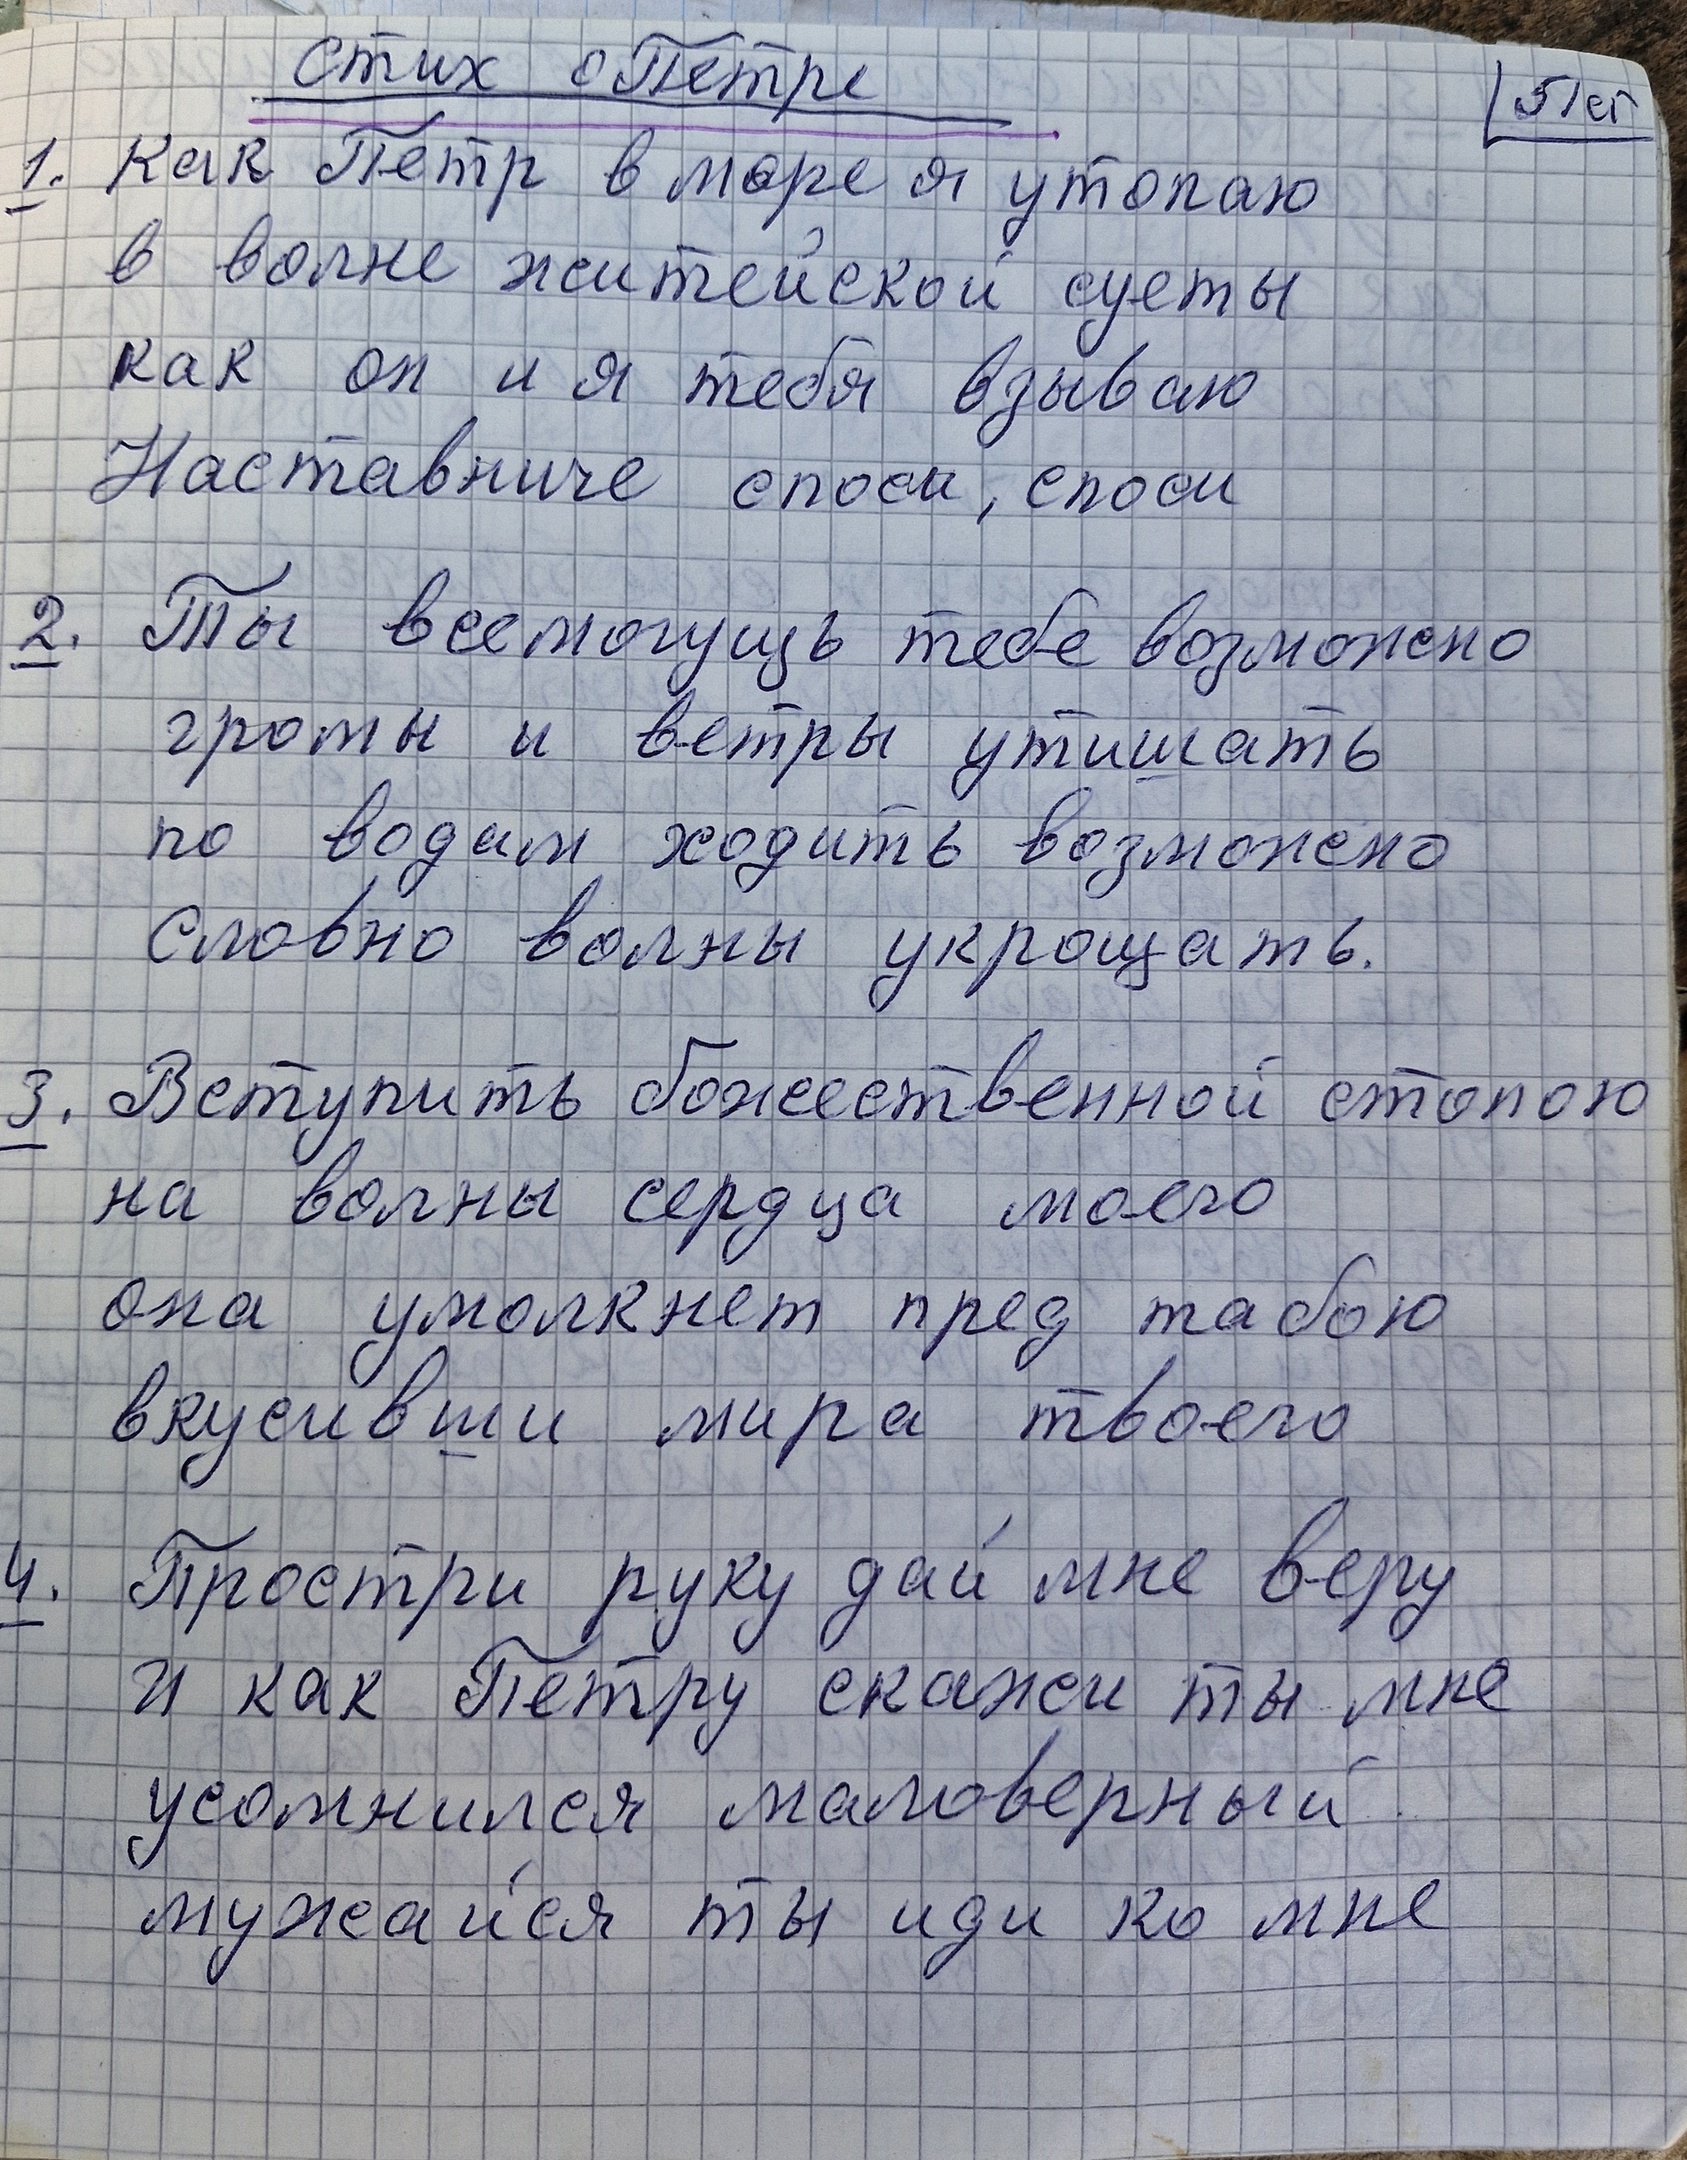 Стих о Петре
5 лет
1. Как Петр в море я утопаю
в волне житейской суеты
как он и я тебя взываю
Наставниче споси, споси
2. Ты всемогущь тебе возможно
громы и ветры утишать
по водам ходить возможно
Словно волны укрощать.
3. Вступить божественной стопою
на волны сердца моего
она умолкнет пред табою
вкусивши мира твоего
4. Простри руку дай мне веру
и как Петру скажи ты мне
усомнился маловерный
мужайся ты иди ко мне